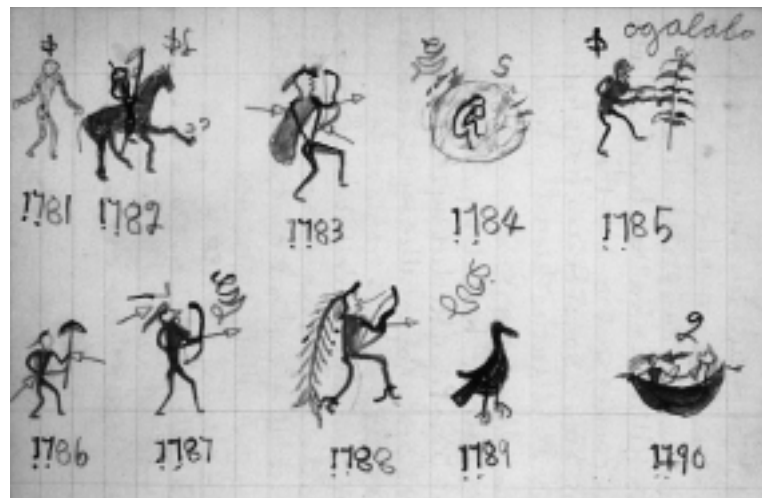 ogalala
1781 1782 1783 1784 1785
1786 1787 1788 1789 1790